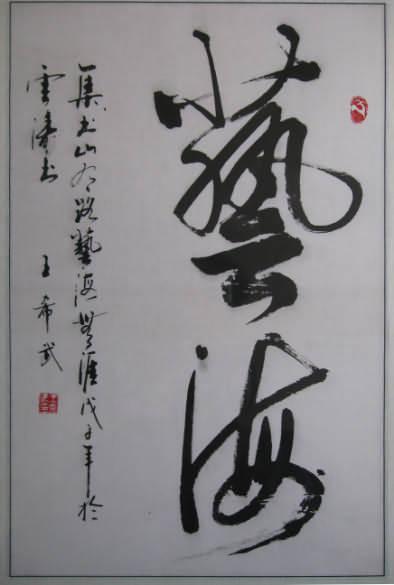 藝海
集書山有路藝海無涯戊子年於
雲濤書 王希武